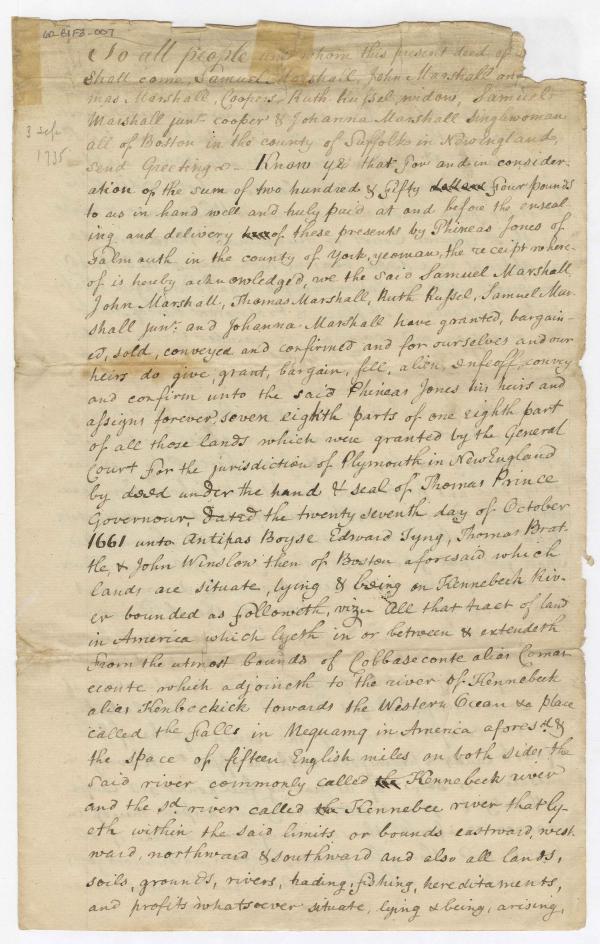 60-B1F3-007
To all people unto whom this present deed of
shall come, Samuel Marshall, John Marshall and
mas Marshall, Coopers, Ruth Russel widow, Samuel
Marshall junr. cooper & Johanna Marshall singlewoman
3 Sep
all of Boston in the county of Suffolk in New England,
1735
send Greeting Know ye that for and in consider-
ation of the sum of two hundred & fifty dollars Four pounds
to us in hand well and truly paid at and before the enseal-
ing and delivery of these presents by Phineas Jones of
Falmouth in the county of York, yeoman, the receipt where-
of is hereby acknowledged, we the said Samuel Marshall,
John Marshall, Thomas Marshall, Ruth Russel, Samuel Mar-
shall junr. and Johanna Marshall have granted, bargain-
ed, sold, conveyed and confirmed and for ourselves and our
heirs do give, grant, bargain, sell, alien, enfeoff, convey
and confirm unto the said Phineas Jones his heirs and
assigns forever, seven eighth parts of one eighth part
of all those lands which were granted by the General
Court for the jurisdiction of Plymouth in New England
by deed under the hand & seal of Thomas Prince
Governour, Dated the twenty seventh day of October
1661 unto Antipas Boyse Edward Tyng, Thomas Brat-
tle, & John Winslow then of Boston aforesaid which
lands are situate, lying & being on Kennebeck Riv-
er bounded as followeth, vizu. All that tract of land
in America which lyeth in or between & extendeth
from the utmost bounds of Cobbaseconte alias Comas
econte which adjoineth to the river of Kennebeck
alias Kenbeckick towards the Western Ocean & a place
called the falls in Nequamq in America aforesd. &
the space of fifteen English miles on both sides the
said river commonly called the Kennebeck river
and the sd. river called the Kennebec river that ly-
eth within the said limits or bounds eastward, west
ward, northward & southward and also all lands,
soils, grounds, rivers, trading, fishing, hereditaments,
and profits whatsoever situate, lying & being, arising,